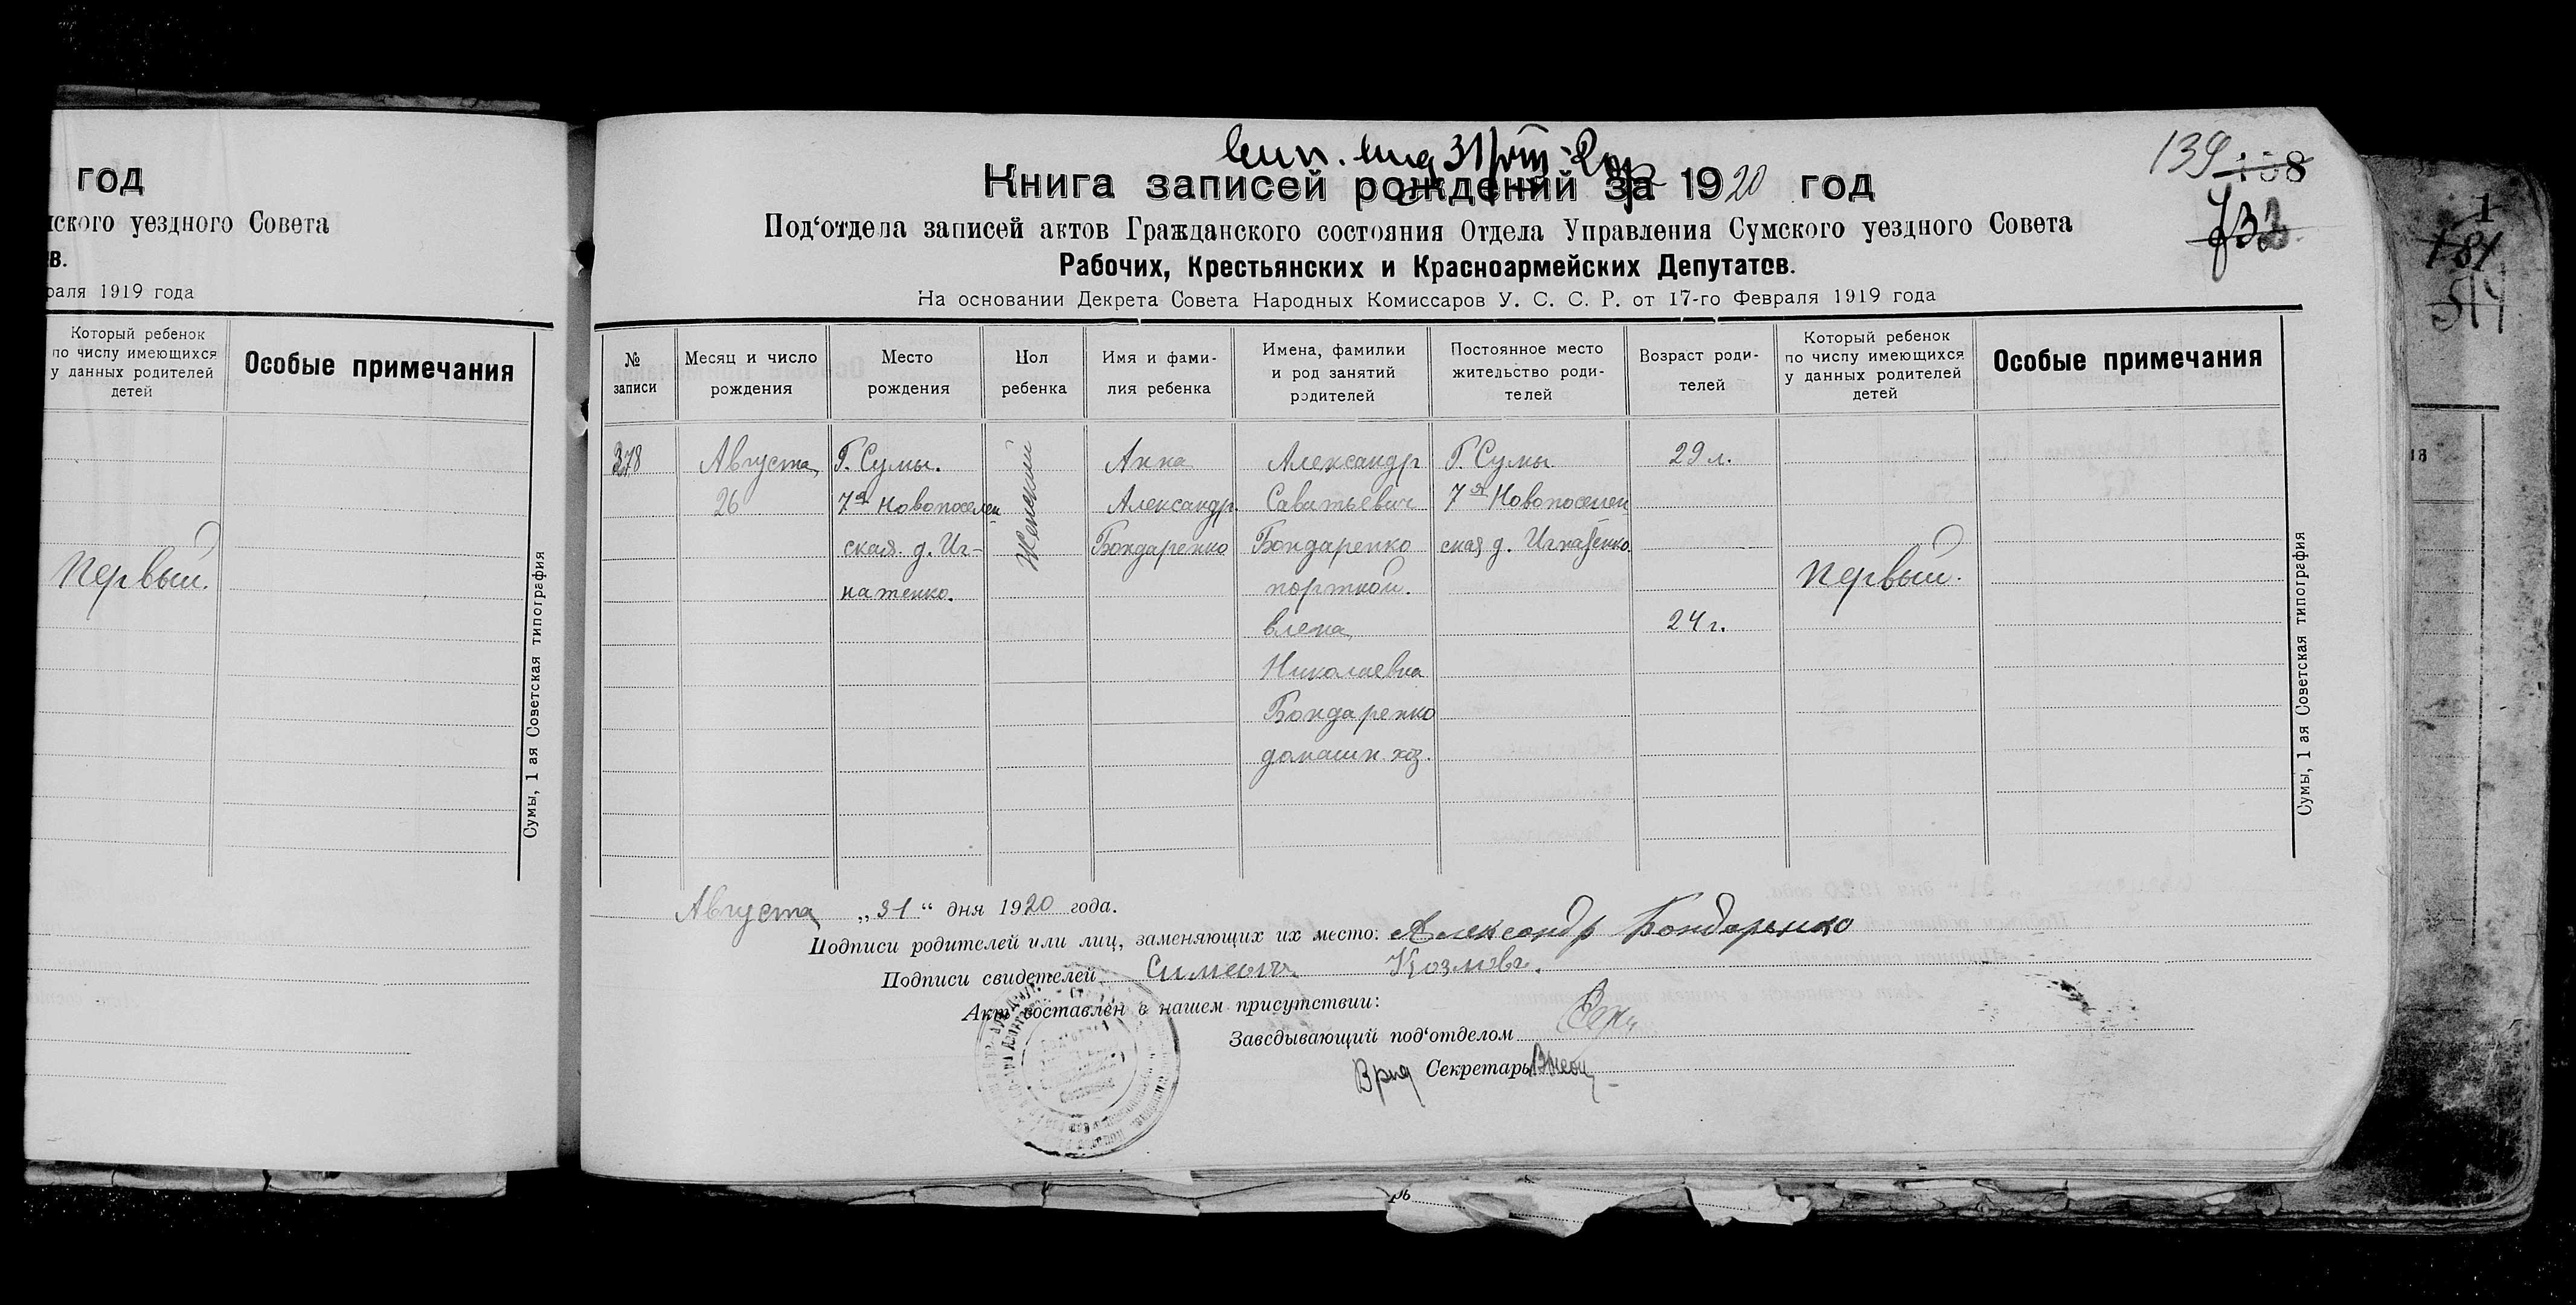 год
ского уездного Совета
в.
раля 1919 года
Который ребенок
по числу имеющихся
у данных родителей
детей
Особые примечания
Первый.
Сумы, 1 ая Советская типография
31
139 138
Книга записей рождений за 1920 год
Под‘отдела записей актов Гражданского состояния Отдела Управления Сумского уездного Совета
Рабочих, Крестьянских и Красноармейских Депутатов.
На основании Декрета Совета Народных Комиссаров У. С. С. Р. от 17-го Февраля 1919 года
№
записи
Месяц и число
рождения
Место
рождения
Пол
ребенка
Имя и фами-
лия ребенка
Имена, фамилии
и род занятий
родителей
Постоянное место
жительство роди-
телей
Возраст роди-
телей
Который ребенок
по числу имеющихся
у данных родителей
детей
Особые примечания
378
Августа
26
Г. Сумы.
7я Новопоселен
ская д. Иг-
натенко.
Женский
Анна
Александр.
Бондаренко
Александр
Саватьевич
Бондаренко
портной.
Елена
Николаевна
Бондаренко
домашн. хоз.
Г. Сумы
7я Новопоселен
ская д. Игнатенко
29 л.
24 г.
Первый.
Сумы, 1 ая Советская типография
Августа „31“ дня 1920 года.
Подписи родителей или лиц, заменяющих их место: Александр Бондаренко
Подписи свидетелей Симеон Козлов.
Акт составлен в нашем присутствии:
Заведывающий под‘отделом
Врид Секретарь
1
181